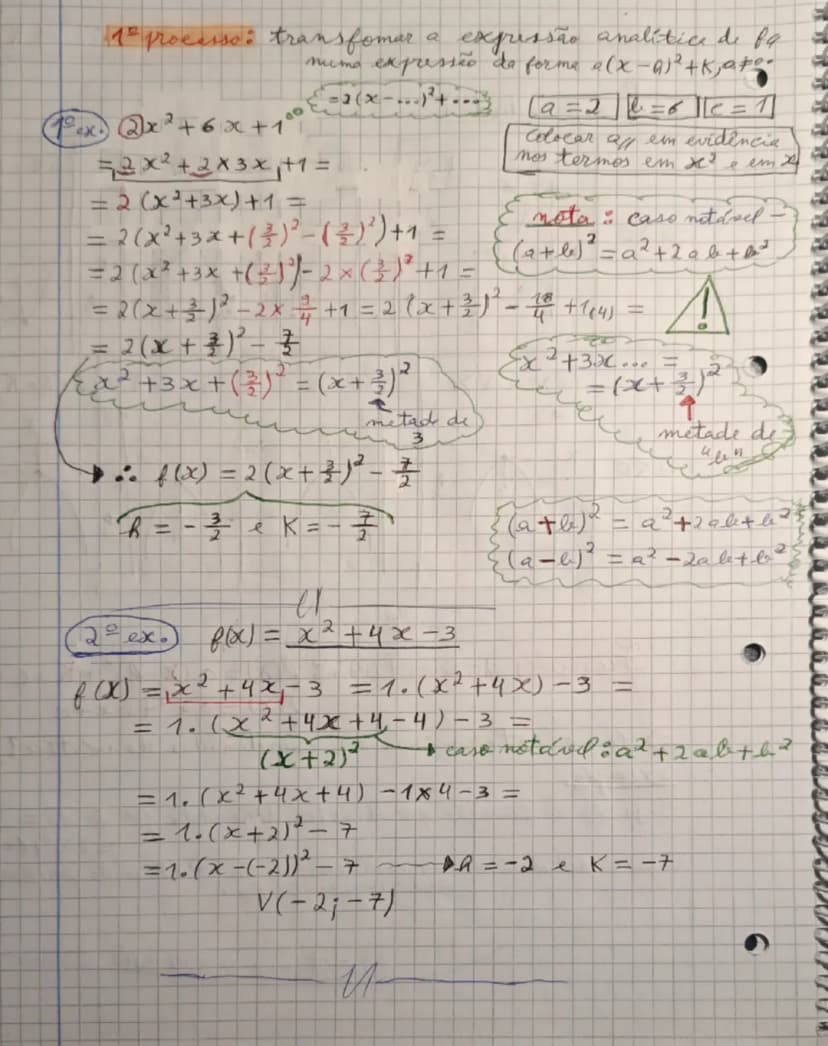 1º processo: transfomar a expressão analítica de fq
numa expressão da forma a(x-h)²+K, a≠0.
=2(x-...)²+...
a=2 b=6 c=1
1º ex. 2x²+6x+1
Colocar a em evidência
nos termos em x² e em x
=2x²+2×3x+1=
=2(x²+3x)+1=
nota: caso notável -
(a+b)²=a²+2ab+b²
=2(x²+3x+(3/2)²-(3/2)²)+1=
=2(x²+3x+(3/2)²)-2×(3/2)²+1=
=2(x+3/2)²-2×9/4+1=2(x+3/2)²-18/4+1(4)=
!
=2(x+3/2)²-7/2
x²+3x+(3/2)²=(x+3/2)²
metade de
3
x²+3x...=
=(x+3/2)²
metade de
"b"
∴ f(x)=2(x+3/2)²-7/2
h=-3/2 e K=-7/2
(a+b)²=a²+2ab+b²
(a-b)²=a²-2ab+b²
2º ex. f(x)=x²+4x-3
f(x)=x²+4x-3=1.(x²+4x)-3=
=1.(x²+4x+4-4)-3=
(x+2)² → caso notável: a²+2ab+b²
=1.(x²+4x+4)-1×4-3=
=1.(x+2)²-7
=1.(x-(-2))²-7 → h=-2 e K=-7
V(-2;-7)